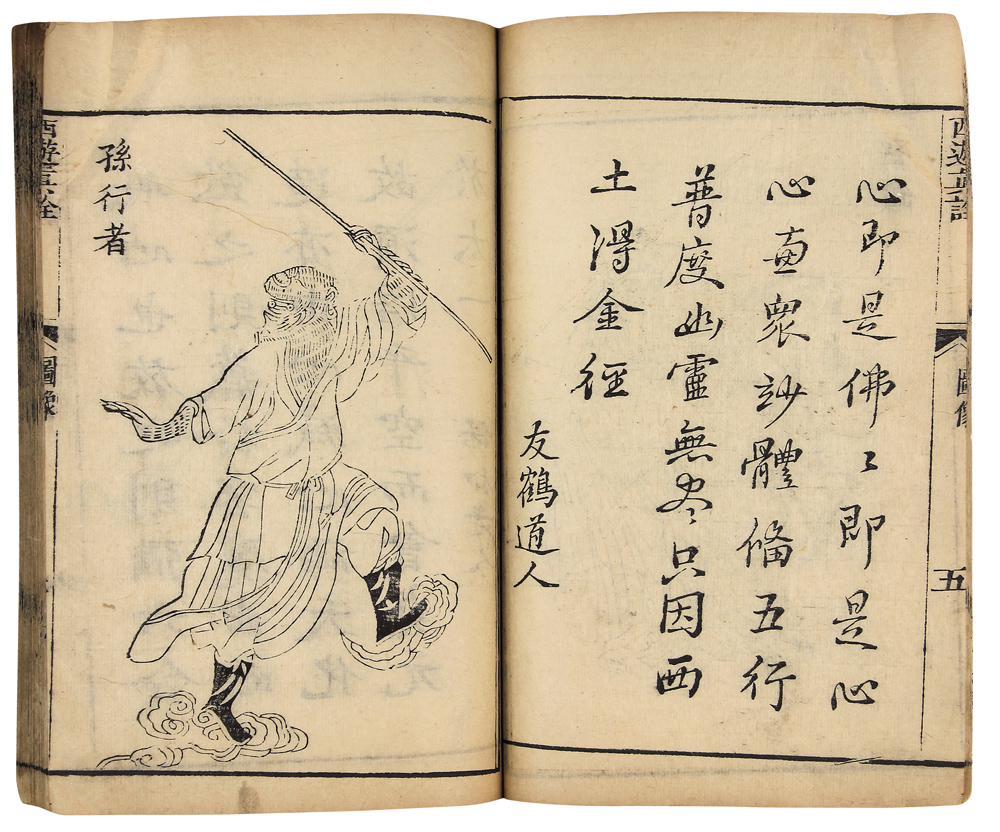 西遊真詮
圖像
五
心即是佛〻即是心
心眾妙體俻五行
普度幽靈無尽只因西
土得金徑
友鶴道人
孫行者
西遊真詮
圖像